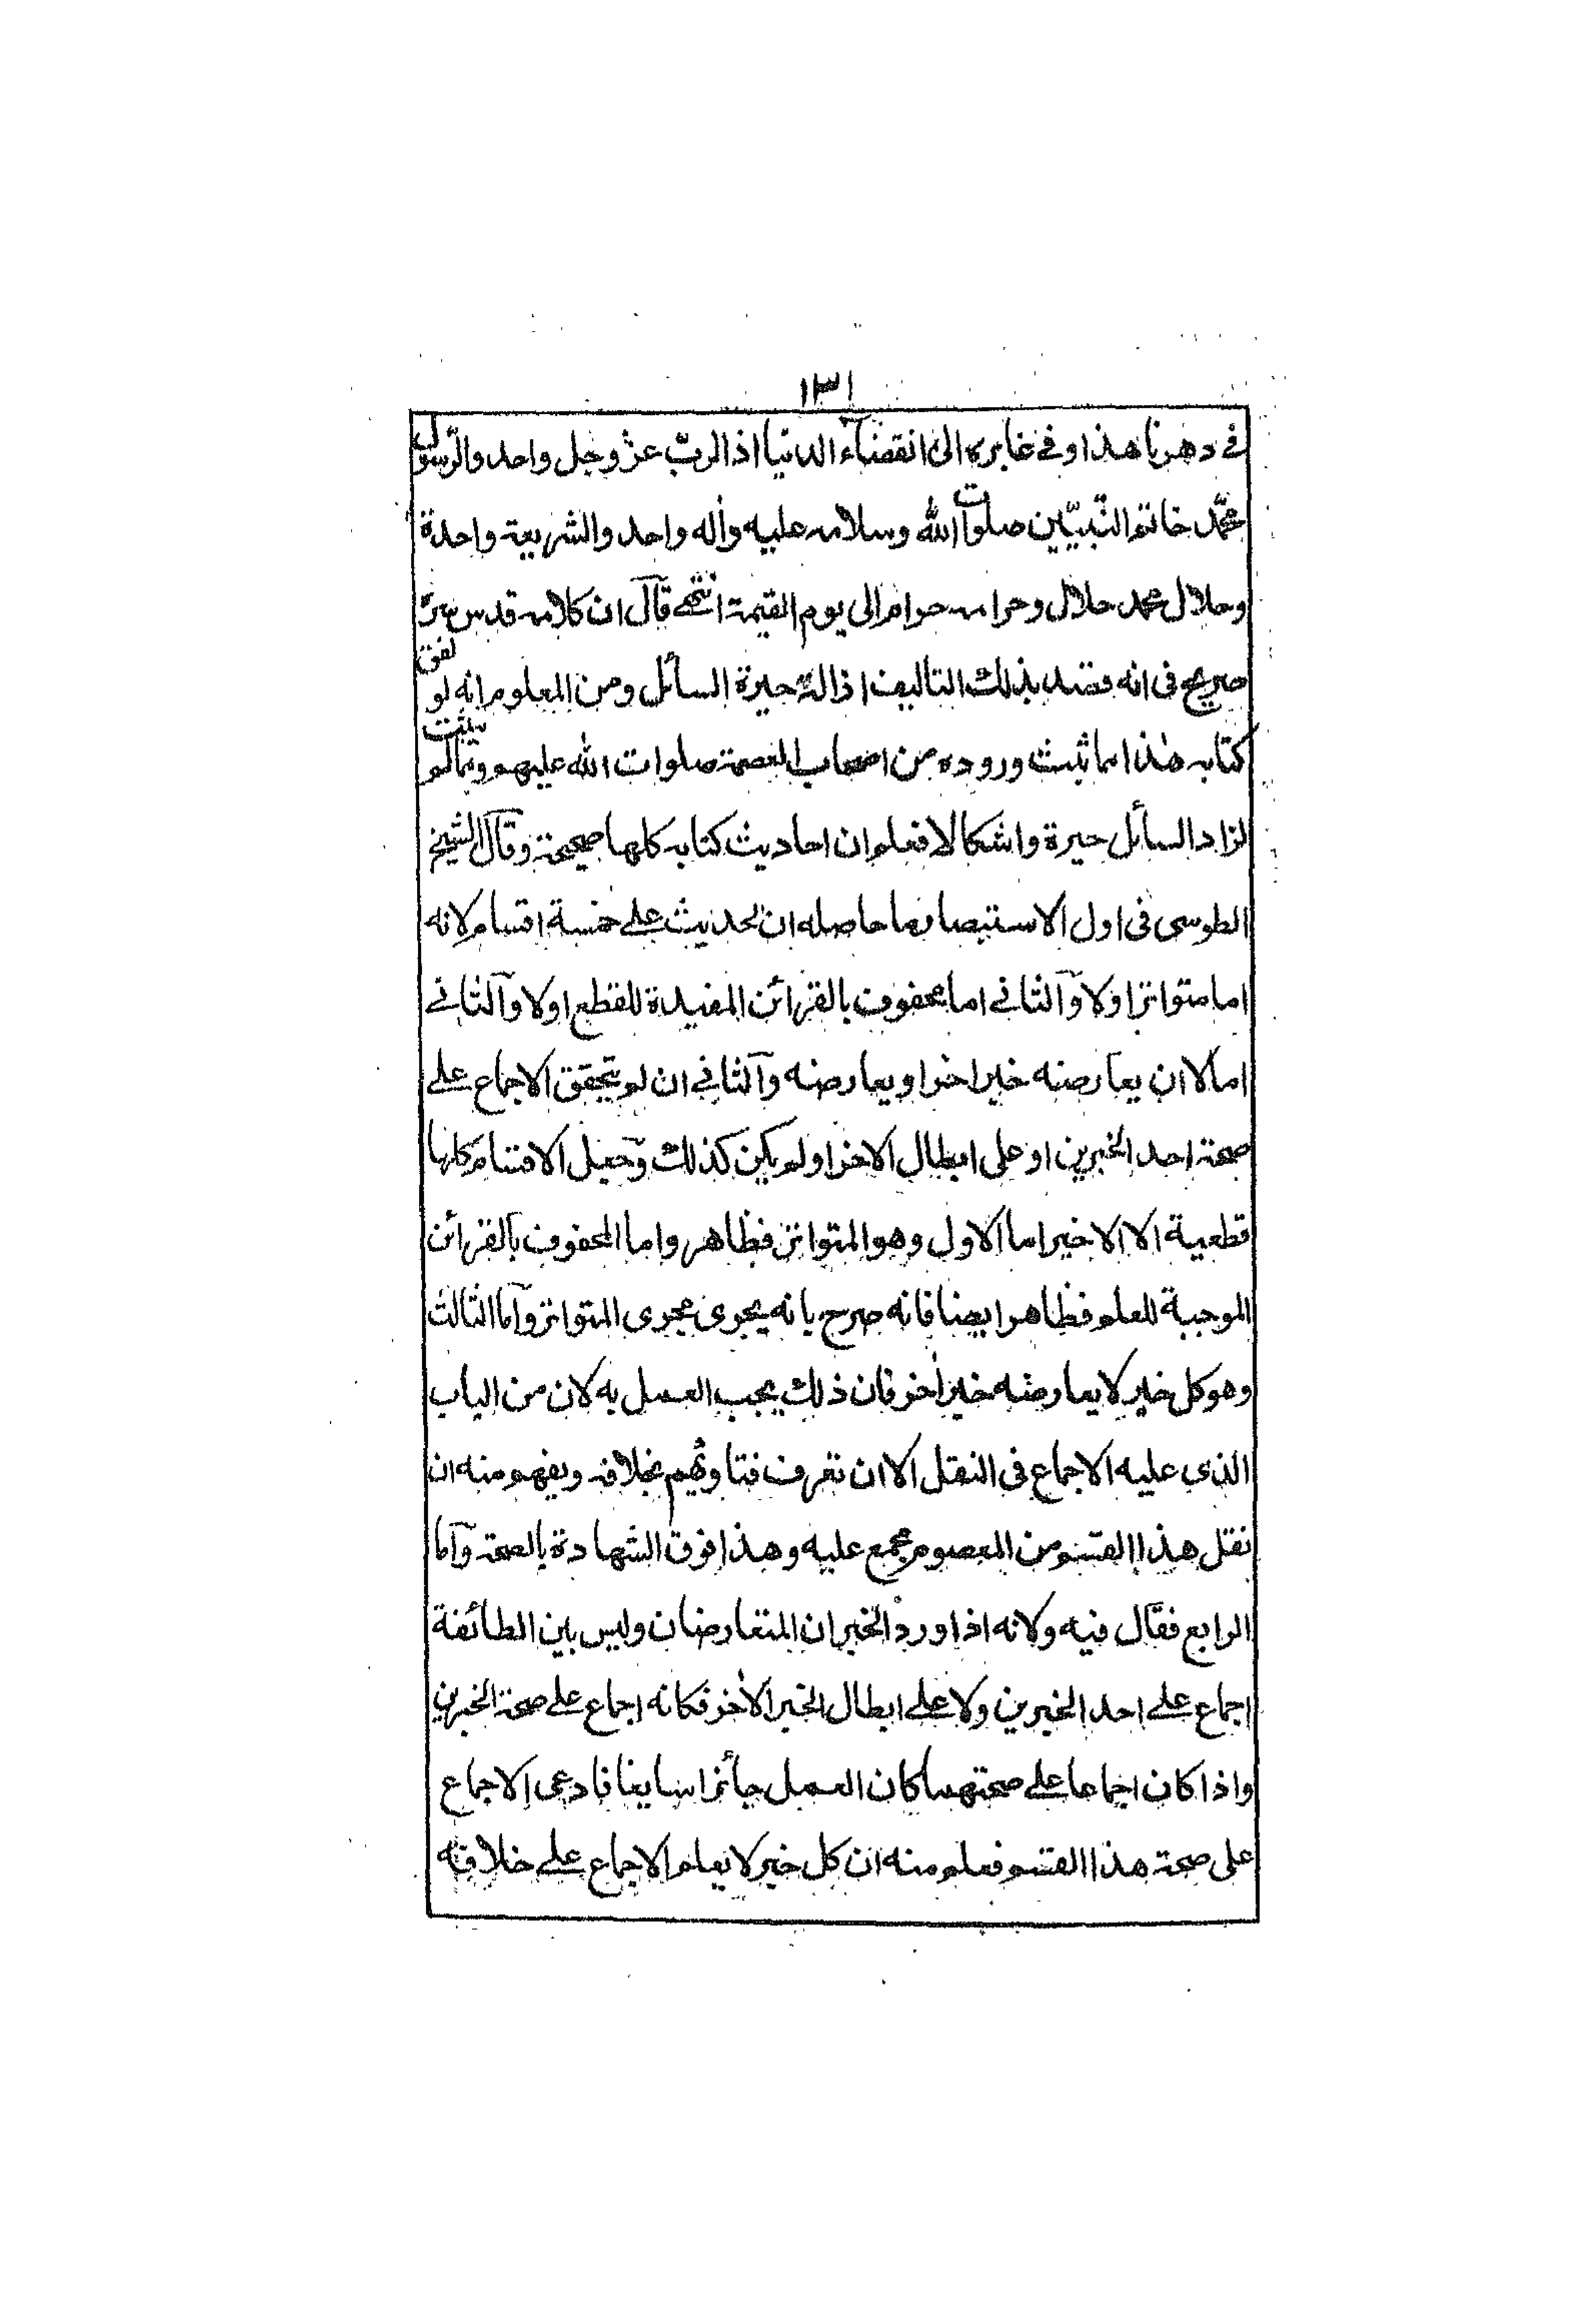 ١٣١
في دهرنا هذا وفي غابره الى انقضاء الدنيا اذ الربّ عزّ وجل واحد والرّسول
محمّد خاتم النّبيّين صلوات الله وسلامه عليه وآله واحد والشريعة واحدة
وحلال محمد حلال وحرامه حرام الى يوم القيمة انتهى قال ان كلامه قدس سرّه
صريح في انه قصد بذلك التاليف ازالة حيرة السائل ومن المعلوم انه لو لفق
كتابه هذا مما ثبت وروده من اصحاب العصمة صلوات الله عليهم ومما لم يثبت
لزاد السائل حيرة واشكالا فعلم ان احاديث كتابه كلها صحيحة وقال الشيخ
الطوسي في اول الاستبصار ما حاصله ان الحديث على خمسة اقسام لانه
اما متواتر اولا والثاني اما محفوف بالقرائن المفيدة للقطع اولا والثاني
اما لا ان يعارضه خبر اخر او يعارضه والثاني ان لم يتحقق الاجماع على
صحة احد الخبرين او على ابطال الاخر او لم يكن كذلك وجعل الاقسام كلها
قطعية الا الاخير اما الاول وهو المتواتر فظاهر واما المحفوف بالقرائن
الموجبة للعلم فظاهر ايضا فانه صرح بانه يجرى مجرى المتواتر واما الثالث
وهو كل خبر لا يعارضه خبر اخر فان ذلك يجب العمل به لان من الباب
الذى عليه الاجماع في النقل الا ان تعرف فتاويهم بخلافه ويفهم منه ان
نقل هذا القسم من المعصوم مجمع عليه وهذا فوق الشهادة بالصحة واما
الرابع فقال فيه ولانه اذا ورد الخبران المتعارضان وليس بين الطائفة
اجماع على احد الخبرين ولا على ابطال الخبر الآخر فكانه اجماع على صحة الخبرين
واذا كان اجماعا على صحتهما كان العمل جائزا سايغا فادعى الاجماع
على صحة هذا القسم فعلم منه ان كل خبر لا يعلم الاجماع على خلافه